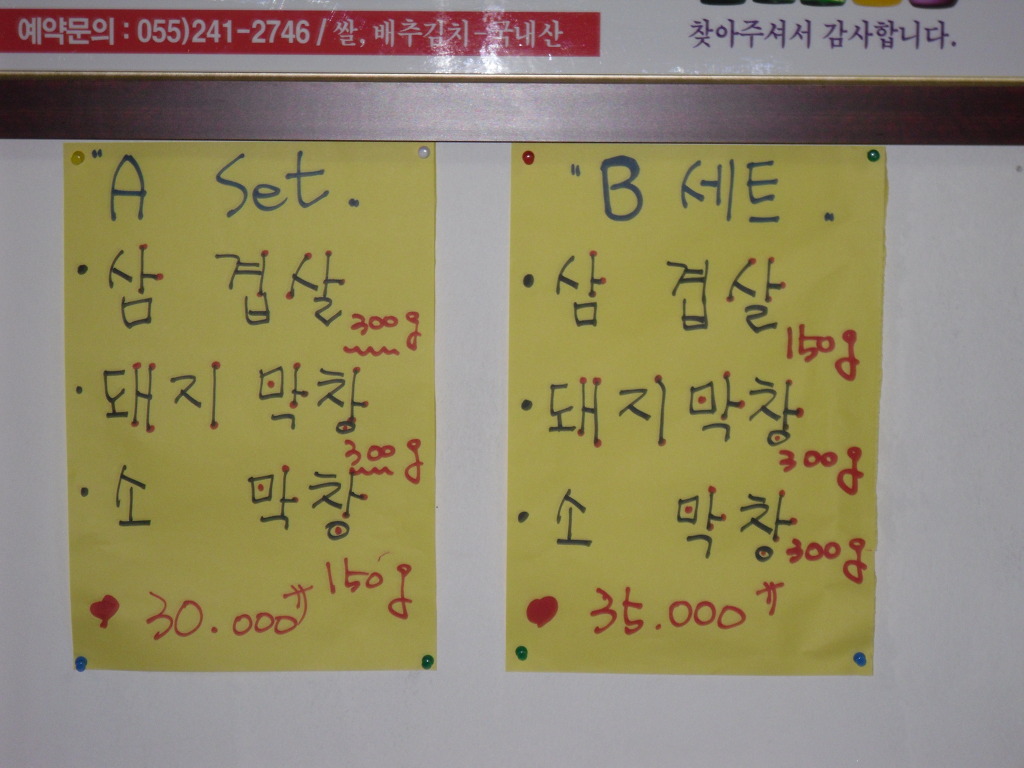 예약문의 : 055)241-2746 / 쌀, 배추김치-국내산
찾아주셔서 감사합니다.
"A Set"
· 삼 겹살
300g
· 돼지 막창
300g
· 소 막창
150g
30.000₩
"B 세트"
· 삼 겹살
150g
· 돼지막창
300g
· 소 막창
300g
35.000₩